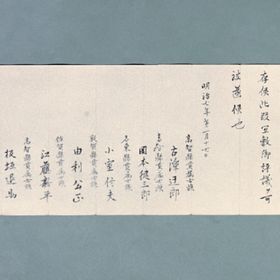 存候此段宜敷御評議可
被成候也
明治七年第一月十七日
高智縣貫属士族
古澤迂郎
高智縣貫属士族
岡本健三郎
名東縣貫属士族
小室信夫
敦賀縣貫属士族
由利公正
佐賀縣貫属士族
江藤新平
高智縣貫属士族
板垣退助